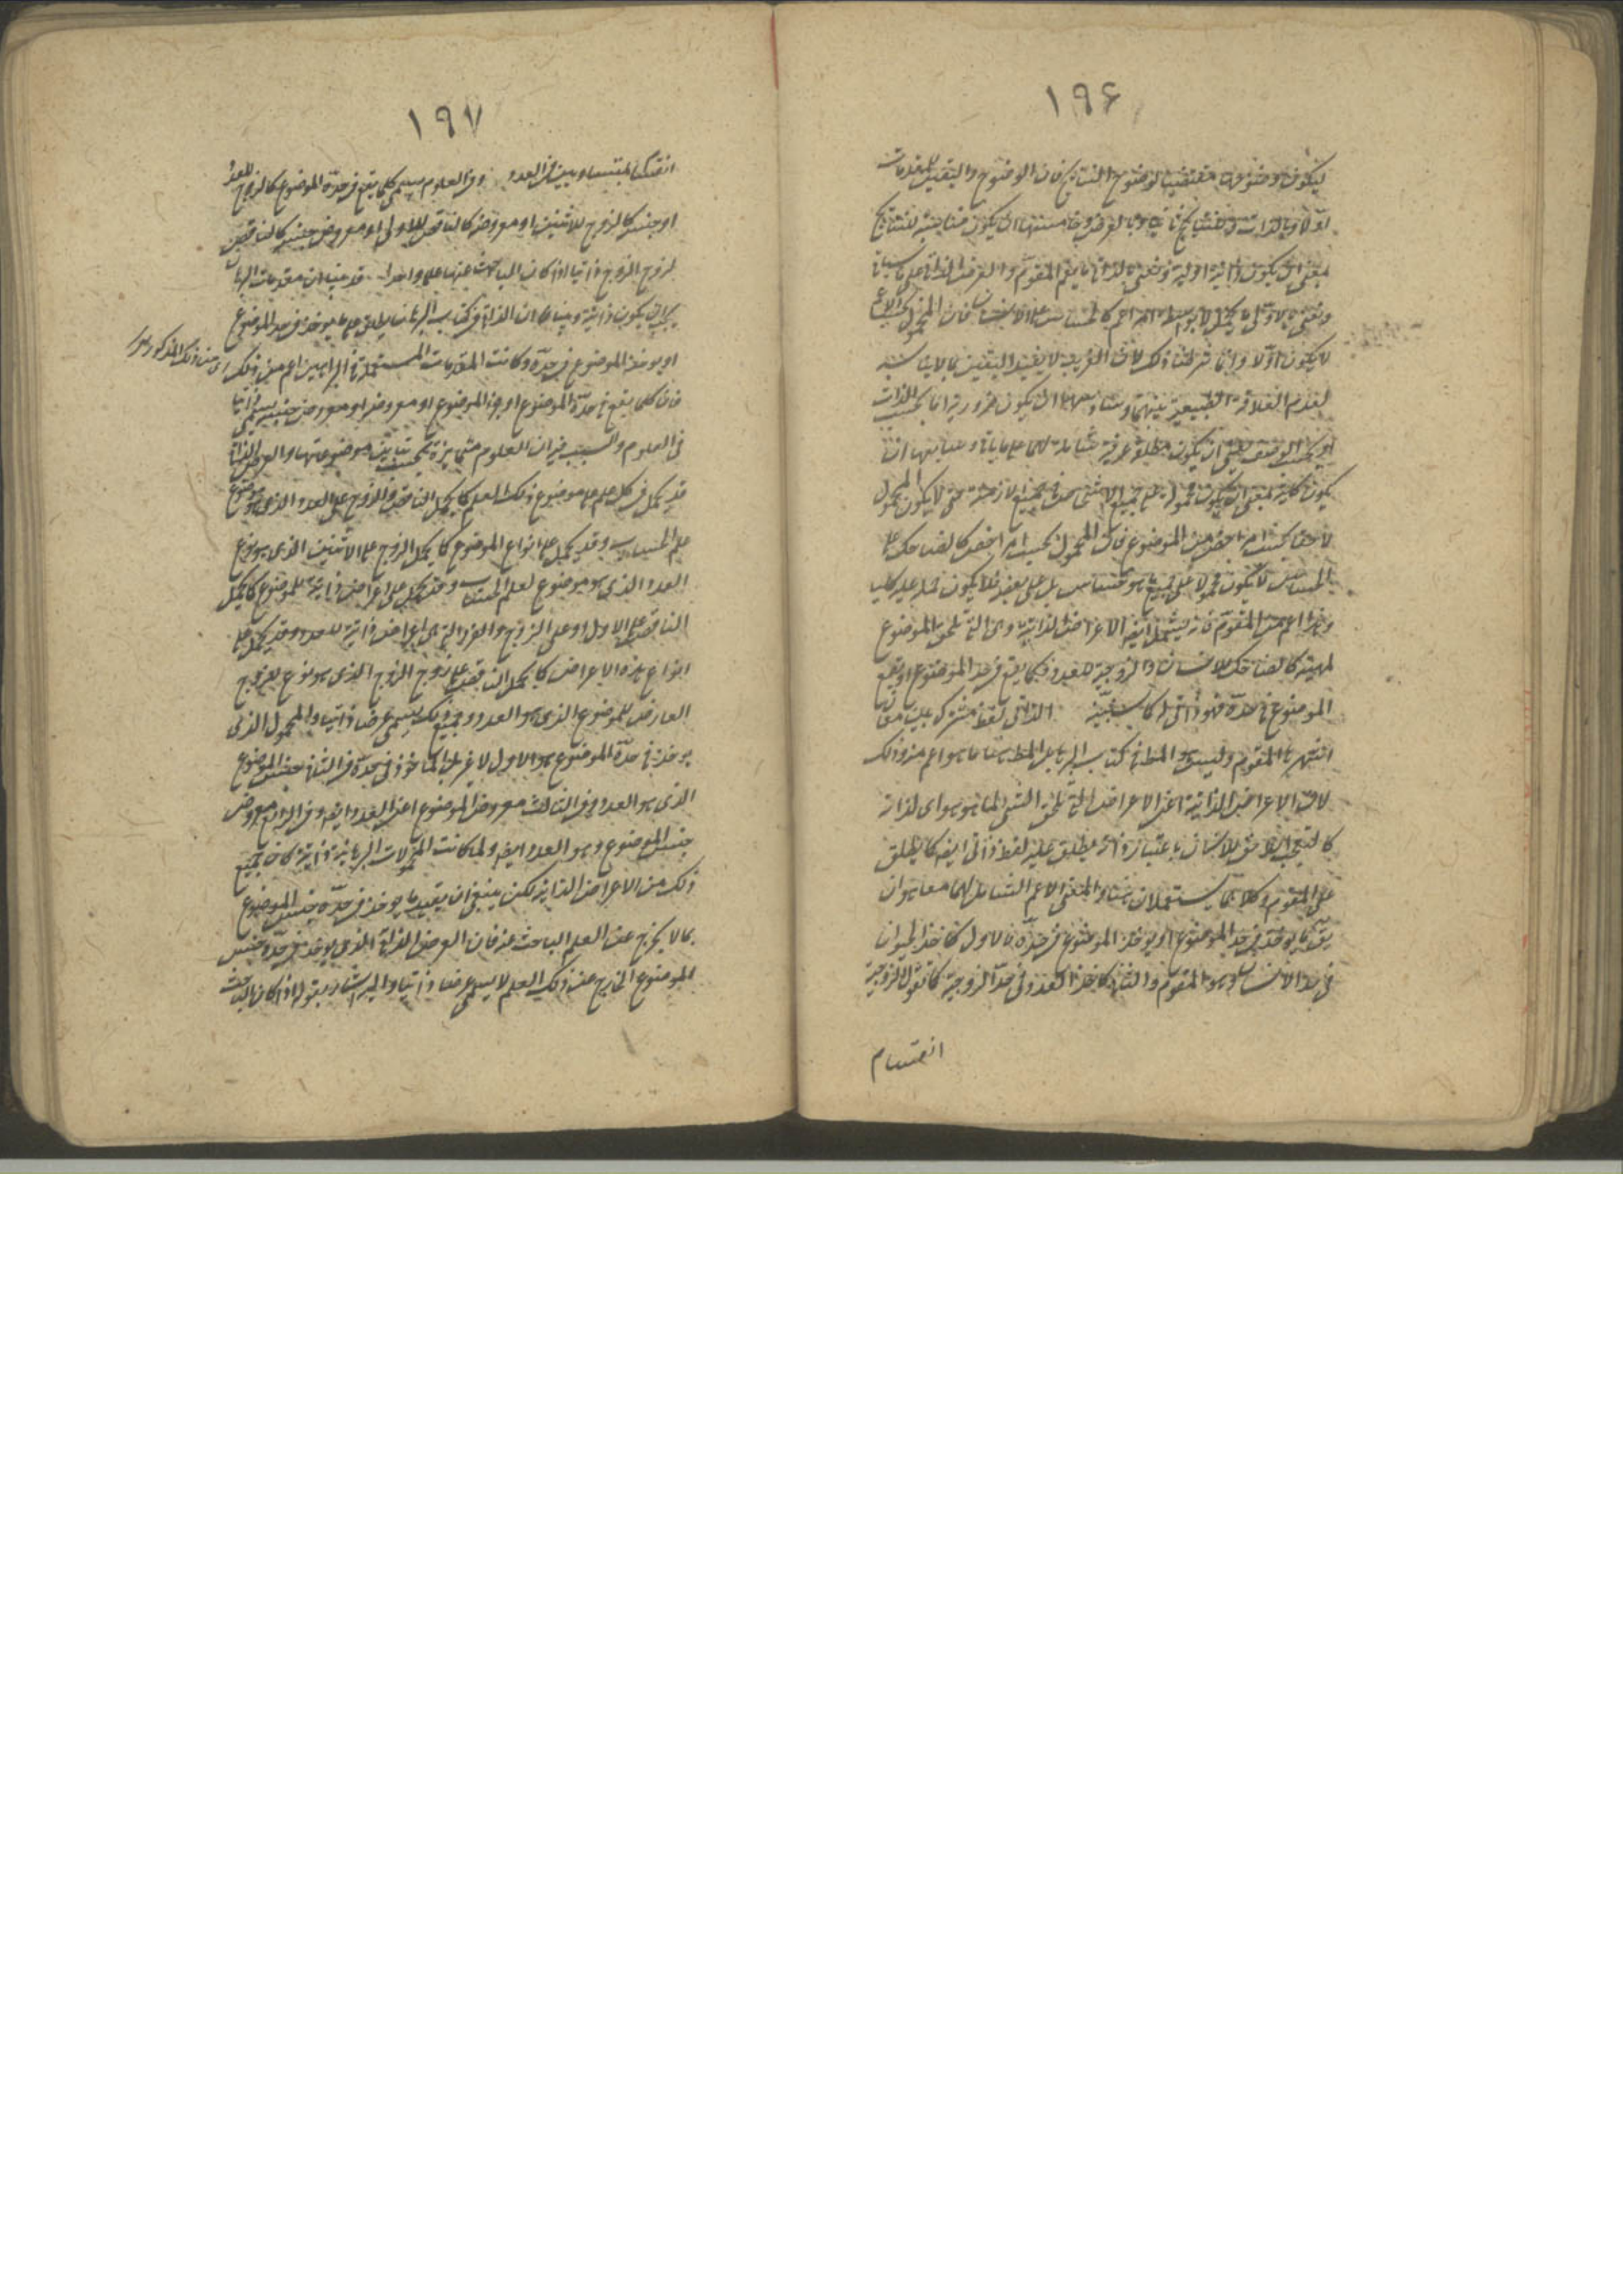 ١٩۶
ليكون وضوحها مقتضيا لوضوح النتايج فان الوضوح واليقين للمقدمات
اولا وبالذات وللنتايج ثانيا وبالعرض وخامستها ان يكون مناسبة للنتايج
بمعنى ان يكون ذاتية اولية ونعنى بالذاتى ما يعم المقوم والعرض الذاتى على ما سياتى
ونعنى بالاولى ما يحمل لا بواسطة امر اعم كالحساس على الانسان فان المحمول بحسب الاعم
لا يكون اولا وانما شرطنا ذلك لان الغريب لا يفيد اليقين بما لا يناسبه
لعدم العلاقة الطبيعية بينهما وسادسها ان يكون ضرورية اما بحسب الذات
او بحسب الوصف اعنى ان يكون مطلقة عرفية شاملة لهما على ما ياتى وسابعها ان
يكون كلية بمعنى ان يكون محمولة على جميع الاشخاص فى جميع الازمنة حتى لا يكون المحمول
لاحقا بحسب امر اخص من الموضوع فان المحمول بحسب امر اخص كالضاحك على
الحساس لا يكون محمولا على جميع ما هو حساس بل على بعضه فلا يكون حمله عليه كليا
وهذا اعم من المقوم فانه يشمل ايضا الاعراض الذاتية وهى التى تلحق الموضوع
لمهيته كالضاحك للانسان والزوجية للعدد فكما يقع فى حد الموضوع او يقع
الموضوع فى حده فهو ذاتى له كما سنبينه الذاتى لفظ مشترك بين معان
اشتهر بها المقوم وليس هو المط فى كتاب البرهان بل المط هنا ما هو اعم من ذلك
لان الاعراض الذاتية اعنى الاعراض التى تلحق الشئ لما هو هو اى لذاته
كالتعجب اللاحق للانسان باعتبار ذاته يطلق عليه لفظ ذاتى ايضا كما يطلق
على المقوم وكلاهما يستعملان هنا والمعنى الاعم الشامل لهما معا هو ان
يق ما يوخذ فى حد الموضوع او يوخذ الموضوع فى حده فالاول كاخذ الحيوان
فى حد الانسان وهو المقوم والثانى كاخذ العدد فى حد الزوجية كما نقول الزوجية
انقسام
١٩٧
انقسام بمتساويين فى العدد وفى العلوم يسمى كلما يقع فى حده الموضوع كالزوج للعدد
او جنسه كالزوج للاثنين او معروضه كالناقص للاول او معروض جنسه كالناقص
لزوج الزوج ذاتيا اذا كان الباحث عنها علما واحدا قد بينا ان مقدمات البرهان
يجب ان يكون ذاتية وبينا ان الذاتى فى كتاب البرهان يطلق على ما يوخذ فى حد الموضوع
او يوخذ الموضوع فى حده وكانت المقدمات المستعملة فى البراهين اعم من ذلك
اى من ذلك المذكور
فان كلما يقع فى حده الموضوع او جزء الموضوع او معروضه او معروض جنسه يسمى ذاتيا
فى العلوم والسبب فيه ان العلوم متمايزة بحسب تباين موضوعاتها والعرض الذاتى
قد يحمل فى كل علم على موضوع ذلك العلم كما يحمل الناقص والزوج على العدد الذى هو موضوع
علم الحساب وقد يحمل على انواع الموضوع كما يحمل الزوج على الاثنين الذى هو نوع
العدد الذى هو موضوع لعلم الحساب وقد يحمل على اعراض ذاتية للموضوع كما يحمل
الناقص على الاول او على الزوج والفرد التى هى اعراض ذاتية للعدد وقد يحمل على
انواع هذه الاعراض كما يحمل الناقص على زوج الزوج الذى هو نوع للزوج
العارض للموضوع الذى هو العدد وجميع ذلك يسمى عرضا ذاتيا والمحمول الذى
يوخذ فى حده الموضوع هو الاول لا غير بل الماخوذ فى حده فى الثانى جنس الموضوع
الذى هو العدد وفى الثالث معروض الموضوع اعنى العدد ايضا وفى الرابع معروض
جنس الموضوع وهو العدد ايضا ولما كانت المحمولات البرهانية ذاتية كان جميع
ذلك من الاعراض الذاتية لكن ينبغى ان يقيد ما يوخذ فى حده جنس الموضوع
بما لا يخرج عن العلم الباحث عنه فان العرض الذاتى الذى يوخذ فى حده جنس
الموضوع الخارج عن ذلك العلم لا يسمى عرضا ذاتيا واليه اشار بقوله اذا كان الباحث